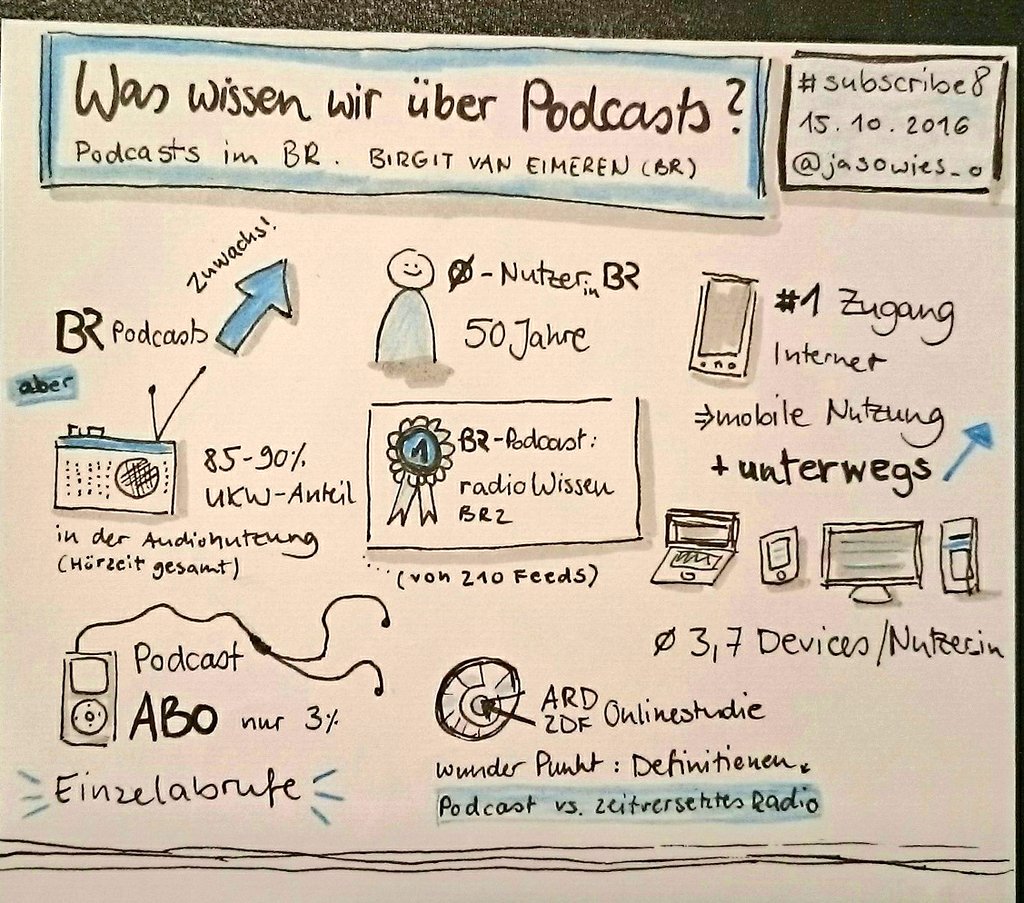 Was wissen wir über Podcasts?
Podcasts im BR. BIRGIT VAN EIMEREN (BR)
#subscribe8
15.10.2016
@jasowies_o
Zuwachs!
BR Podcasts
aber
85-90%
UKW-Anteil
in der Audionutzung
(Hörzeit gesamt)
Ø-Nutzer:in BR
50 Jahre
1
BR-Podcast:
radioWissen
BR2
(von 210 Feeds)
#1 Zugang
Internet
⇒mobile Nutzung
+unterwegs
Ø 3,7 Devices/Nutzer:in
Podcast
ABO nur 3%
Einzelabrufe
ARD
ZDF Onlinestudie
wunder Punkt: Definitionen.
Podcast vs. zeitversetztes Radio